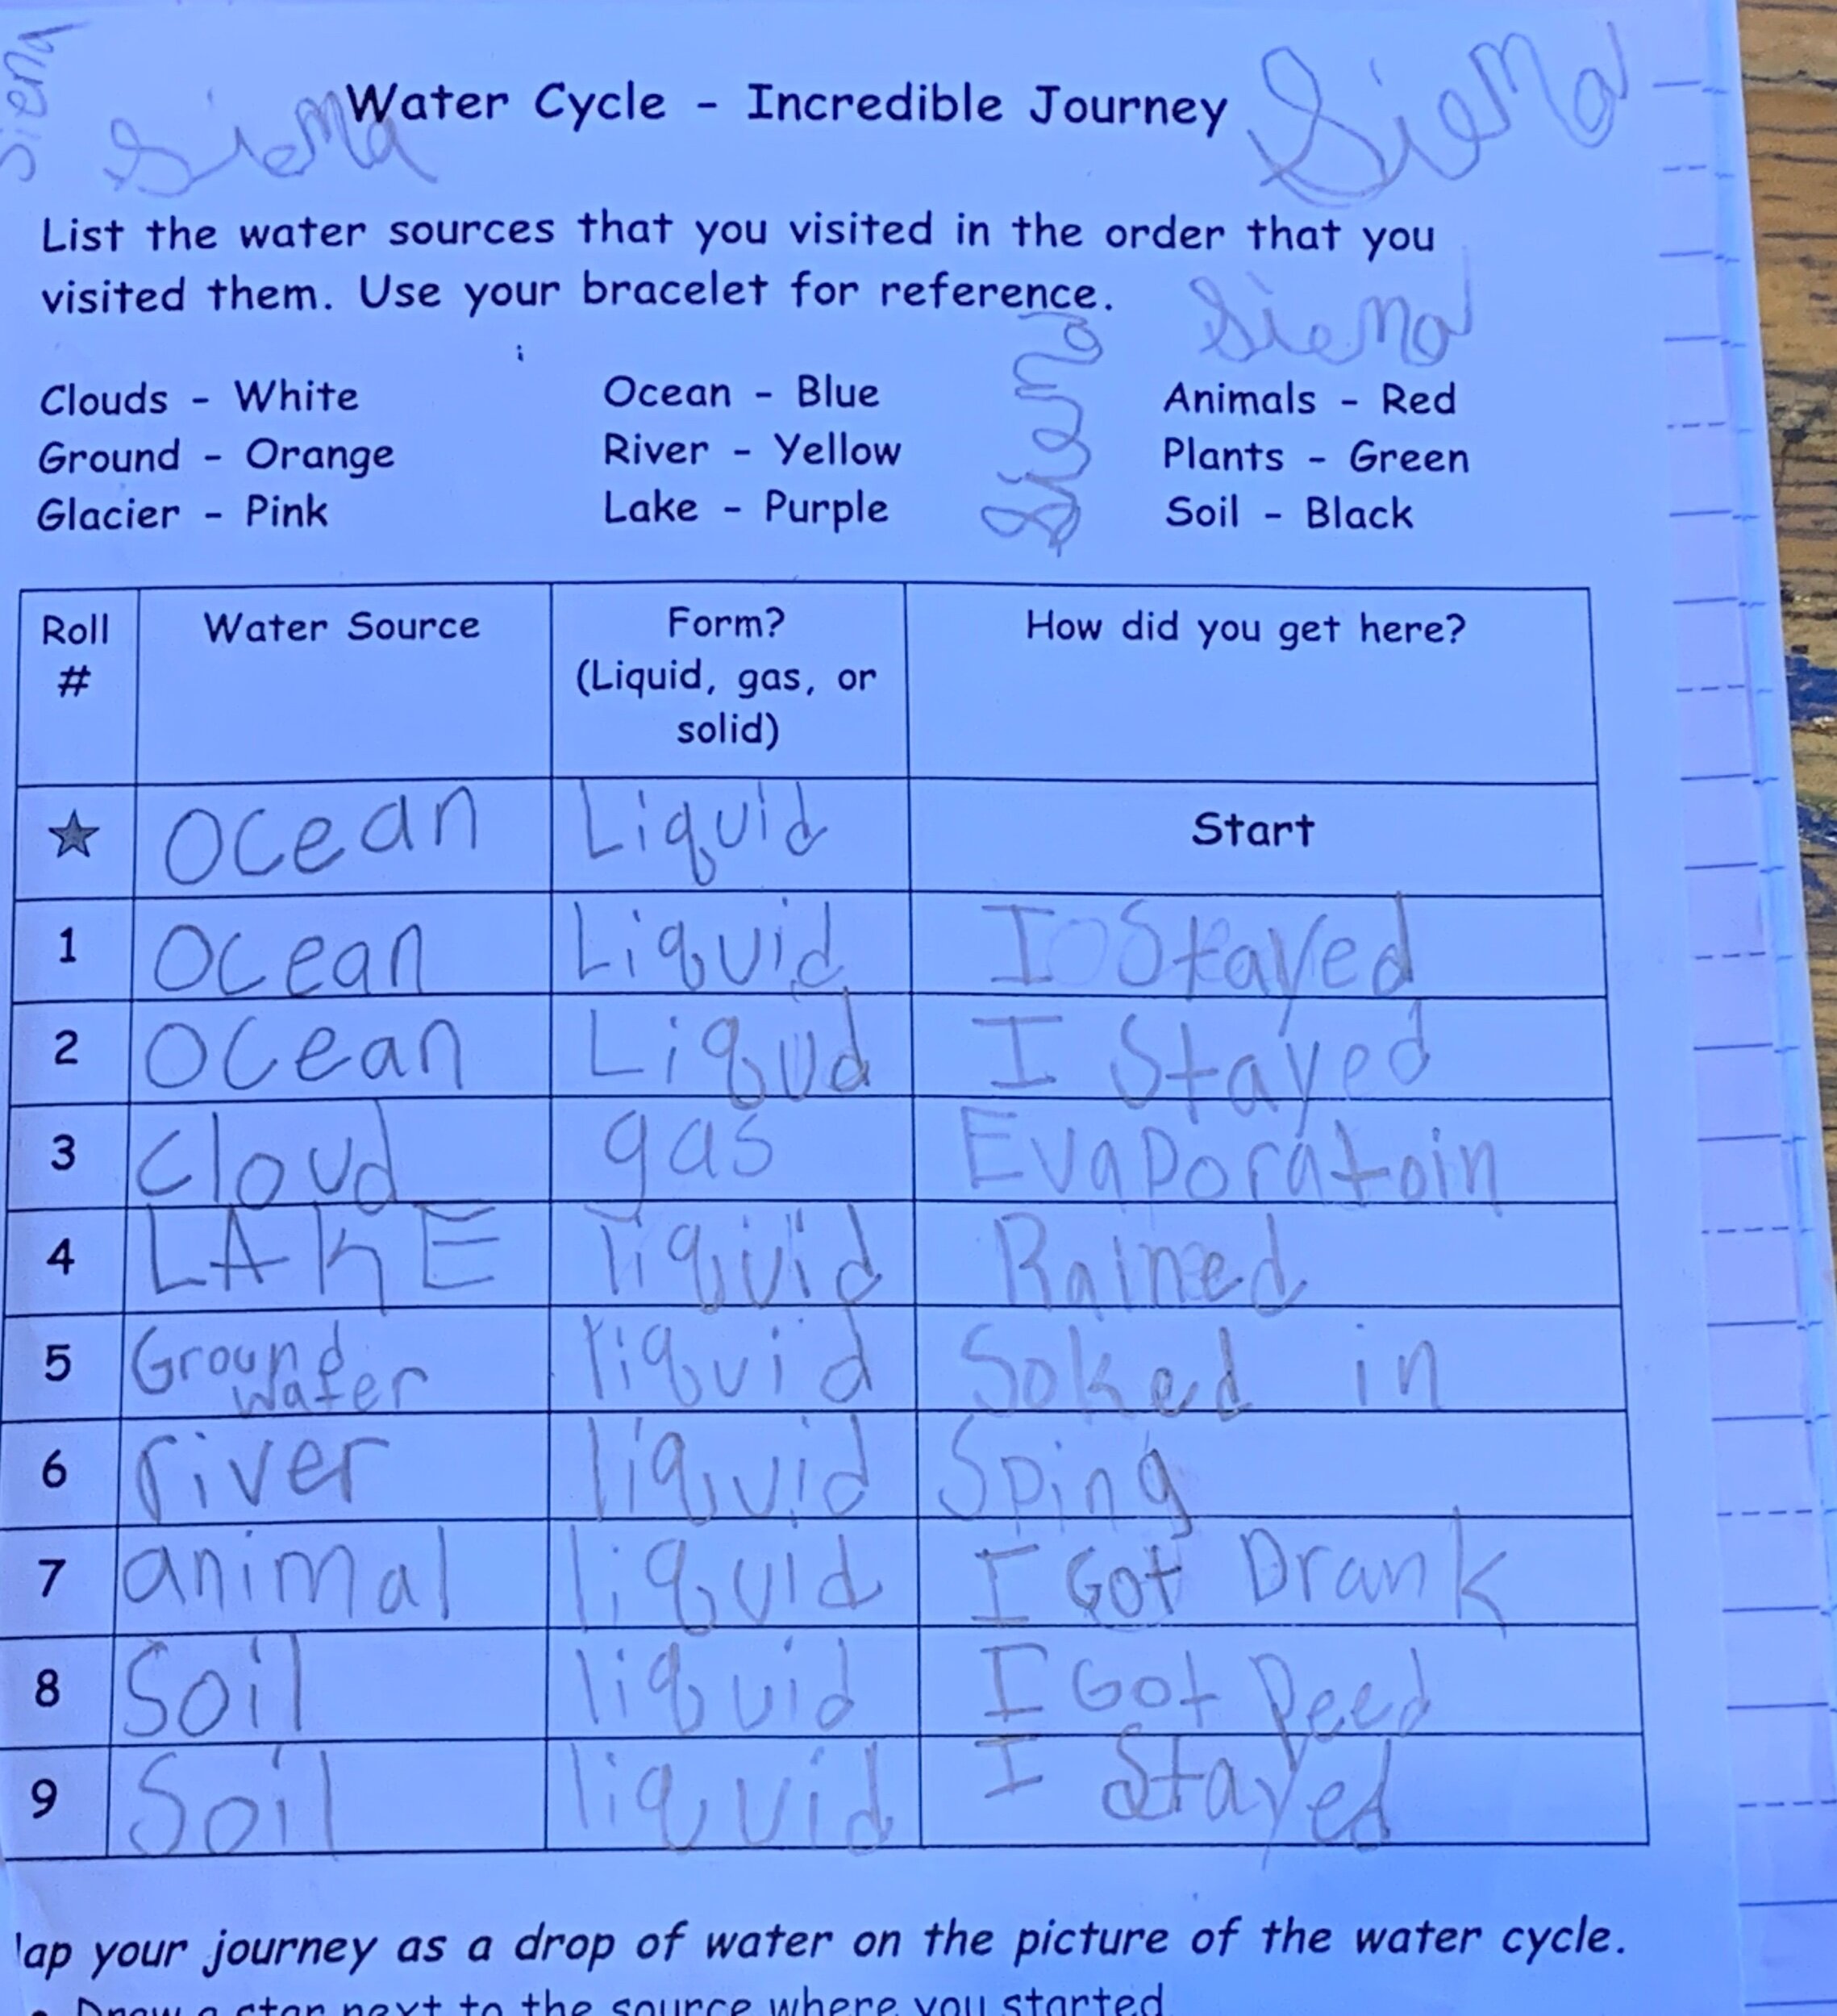 Siena
Siena Water Cycle - Incredible Journey Siena
List the water sources that you visited in the order that you
visited them. Use your bracelet for reference.
Siena
Siena
Clouds - White Ocean - Blue Animals - Red
Ground - Orange River - Yellow Plants - Green
Glacier - Pink Lake - Purple Soil - Black
Roll Water Source Form? How did you get here?
# (Liquid, gas, or
solid)
★ Ocean Liquid Start
1 Ocean Liquid I Stayed
2 Ocean Liqud I Stayed
3 cloud gas Evaporatoin
4 LAKE liquid Rained
5 Ground liquid Soked in
water
6 river liquid Sping
7 animal liquid I Got Drank
8 Soil liquid I Got Peed
9 Soil liquid I Stayed
ap your journey as a drop of water on the picture of the water cycle.
• Draw a star next to the source where you started